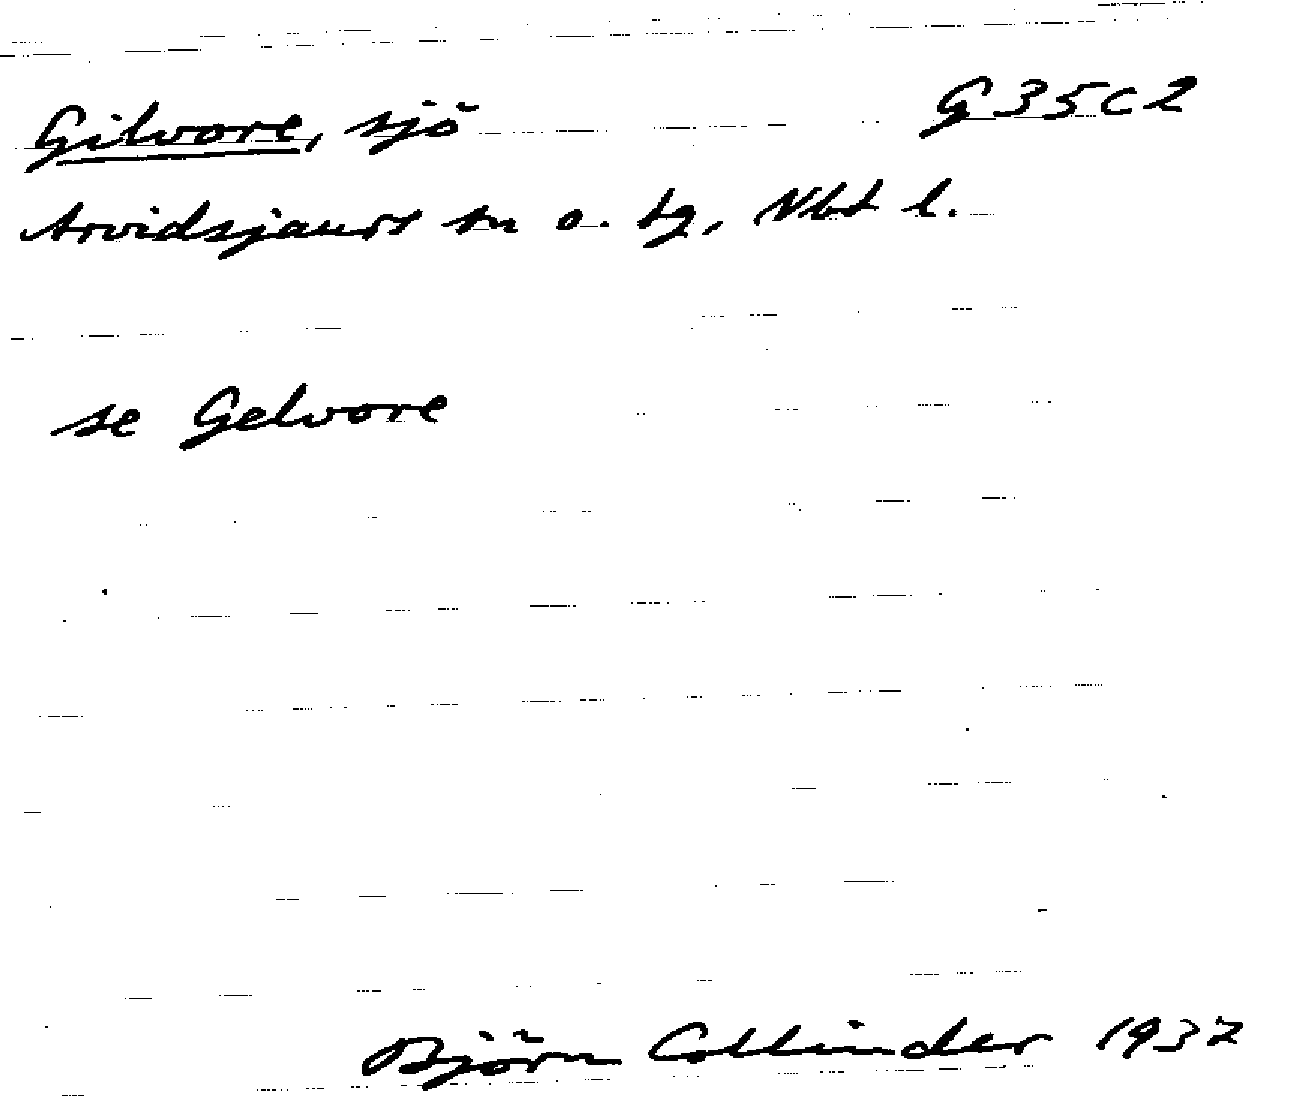 Gilvore, sjö G35c2
Arvidsjaurs sn o. tg, Nbt l.
se Gelvore
Björn Collinder 1937